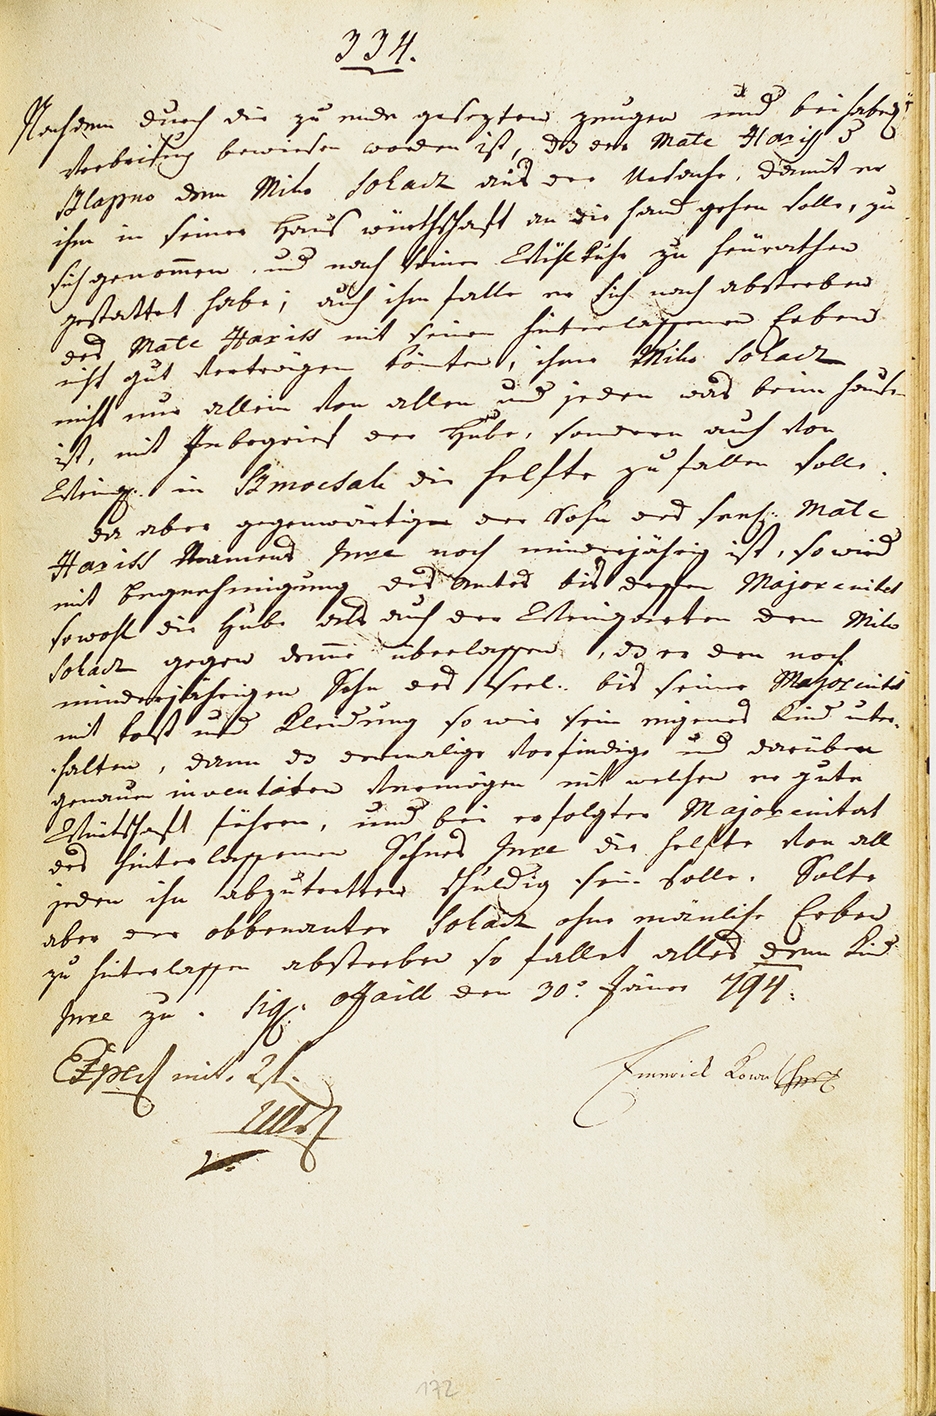 334.
Nachdem durch die zu ende gesezten zeugen und beihabend
bewiesen worden ist, dß der Mate Hariss z
dem Miko Solacz aus der Ursache, damit er
ihm in seiner Haus würthschaft an die hand gehen solle, zu
sich genommen, und nach seiner Willkuhr zu heürathen
gestattet habe; auch ihm falle er sich nach absterben
des Mate Hariss mit seinen hinterlassenen Erben
nicht gut vertragen könte, ihme Miko Solacz
nicht nur allein von allen und jeden was beim hause
ist, mit Inbegrief der Hube, sondern auch von
Weing: in die helfte zu fallen solle.
da aber gegenwärtig der Sohn des Mate
Hariss Namens Jure noch minderjährig ist, so wird
mit begnehmigung des Amtes bis dessen Majorenitet
sowohl die Hube als auch der Weingarten dem Miko
Solacz gegen deme überlassen, dß er den noch
minderjährigen Sohn des Seel: bis seiner Majorenitet
mit kost und Kleidung so wie sein eigenes Kind unter-
halten, dann dß dermalige vorfindige und darüber
genauer inventirten vermögen mit welchen er gute
Wirtschaft führen, und bei erfolgter Majorenitat
des hinterlassenen Sohnes Jure die helfte von all
jeden ihm abzutretten schuldig sein solle. Solte
aber der obbenanter Solacz ohne mänliche Erben
zu hinterlassen absterben so fallet alles dem Kind
Jure zu. Sig: den 30: Jäner 794:
Exped mit. 2f.
Emerick
172